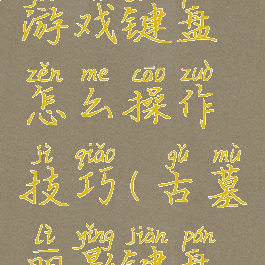 游戏键盘
zěn me cāo zuò
怎么操作
jì qiǎo gǔ mù
技巧(古墓
lì yǐng jiàn pán